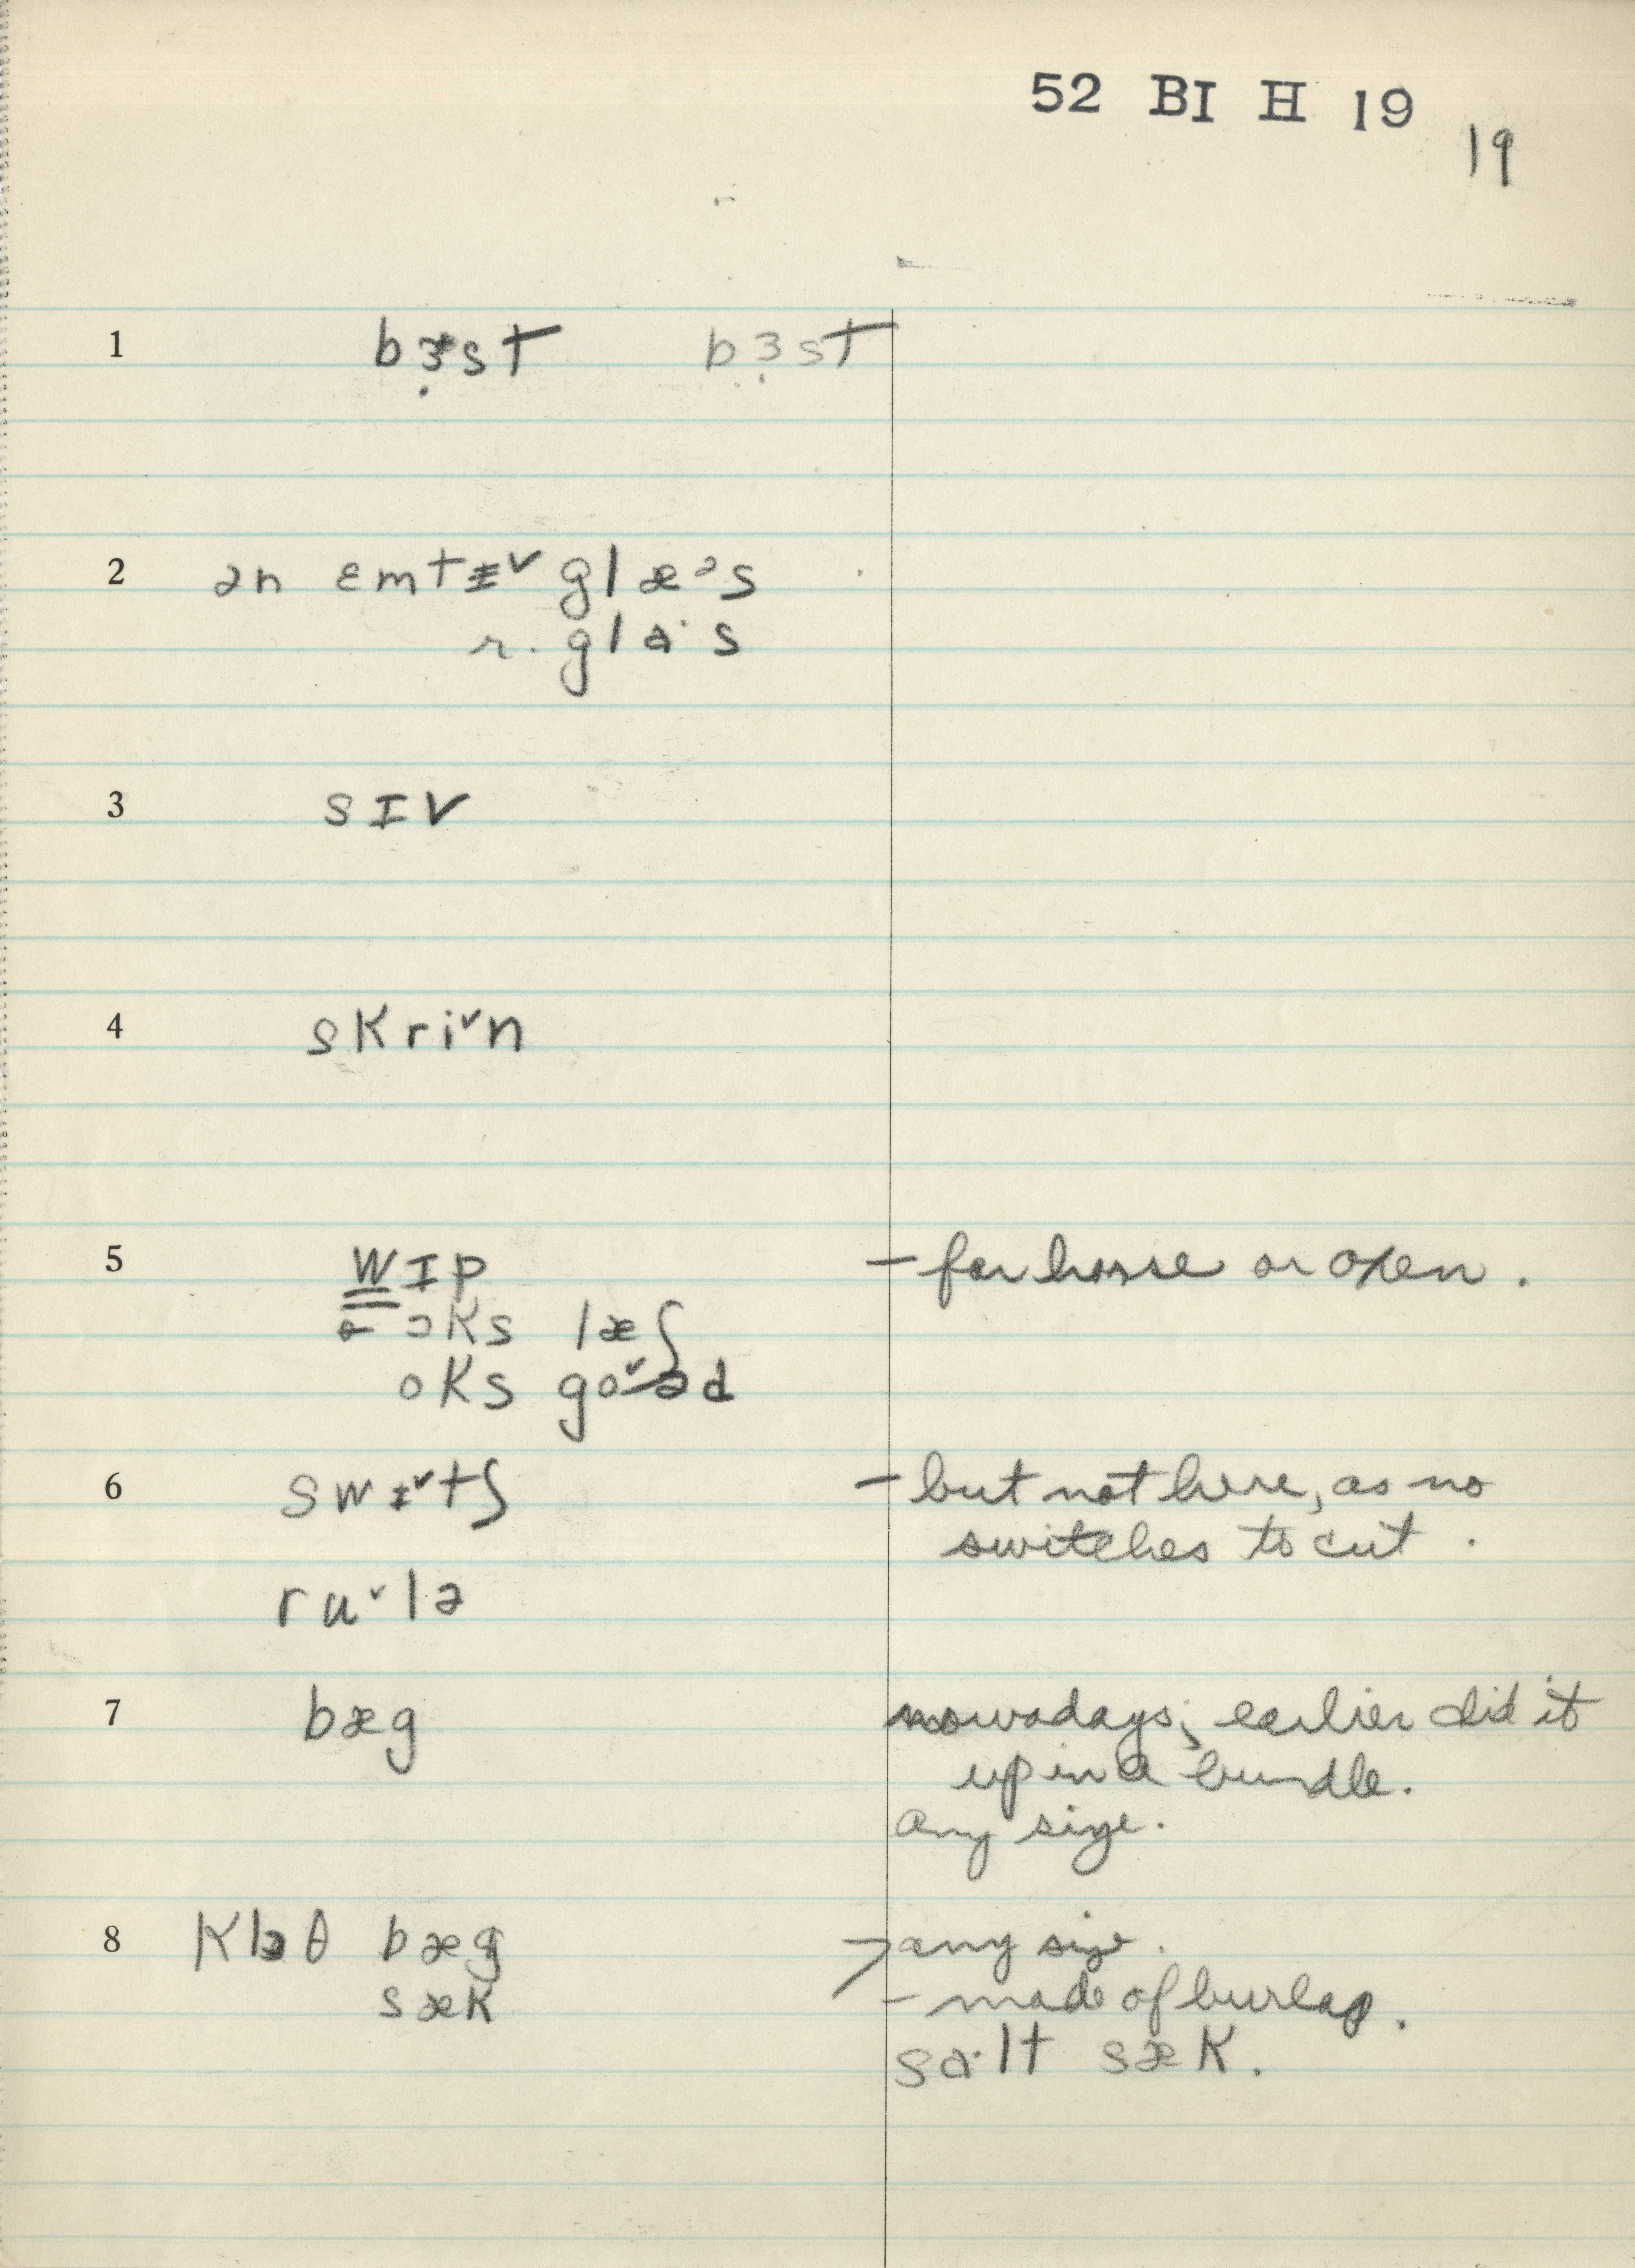 52 BI H 19
19
1 bɜ̣st bɜ̣st
2 ən ɛmtɪˇ glæᵊs
r. gla·s
3 sɪv
4 skriˇn
5 wɪp - for horse or oxen.
ɔks læʃ
oks goˇəd
6 swɪˇtʃ - but not here, as no
switches to cut.
ruˇlə
7 bæg nowadays; earlier did it
up in a bundle.
any size.
8 klɔθ bæg any size.
sæk - made of burlap.
sɑ·lt sæk.